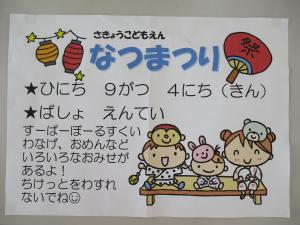 さきょうこどもえん
なつまつり
祭
★ひにち 9がつ 4にち(きん)
★ばしょ えんてい
すーぱーぼーるすくい
わなげ、おめんなど
いろいろなおみせが
あるよ!
ちけっとをわすれ
ないでね☺